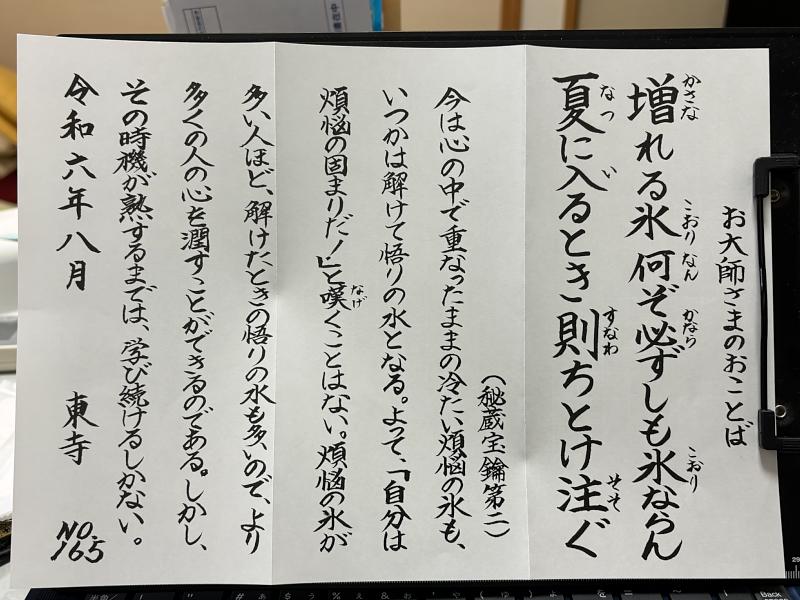 お大師さまのおことば
増れる氷何ぞ必ずしも氷ならん
かさな こおり なん かなら こおり
夏に入るとき則ちとけ注ぐ
なつ い すなわ そそ
（秘蔵宝鑰第二）
今は心の中で重なったままの冷たい煩悩の氷も、
いつかは解けて悟りの水となる。よって、「自分は
煩悩の固まりだ！」と嘆くことはない。煩悩の氷が
なげ
多い人ほど、解けたときの悟りの水も多いので、より
多くの人の心を潤すことができるのである。しかし、
その時機が熟するまでは、学び続けるしかない。
令和六年八月 東寺
NO.165